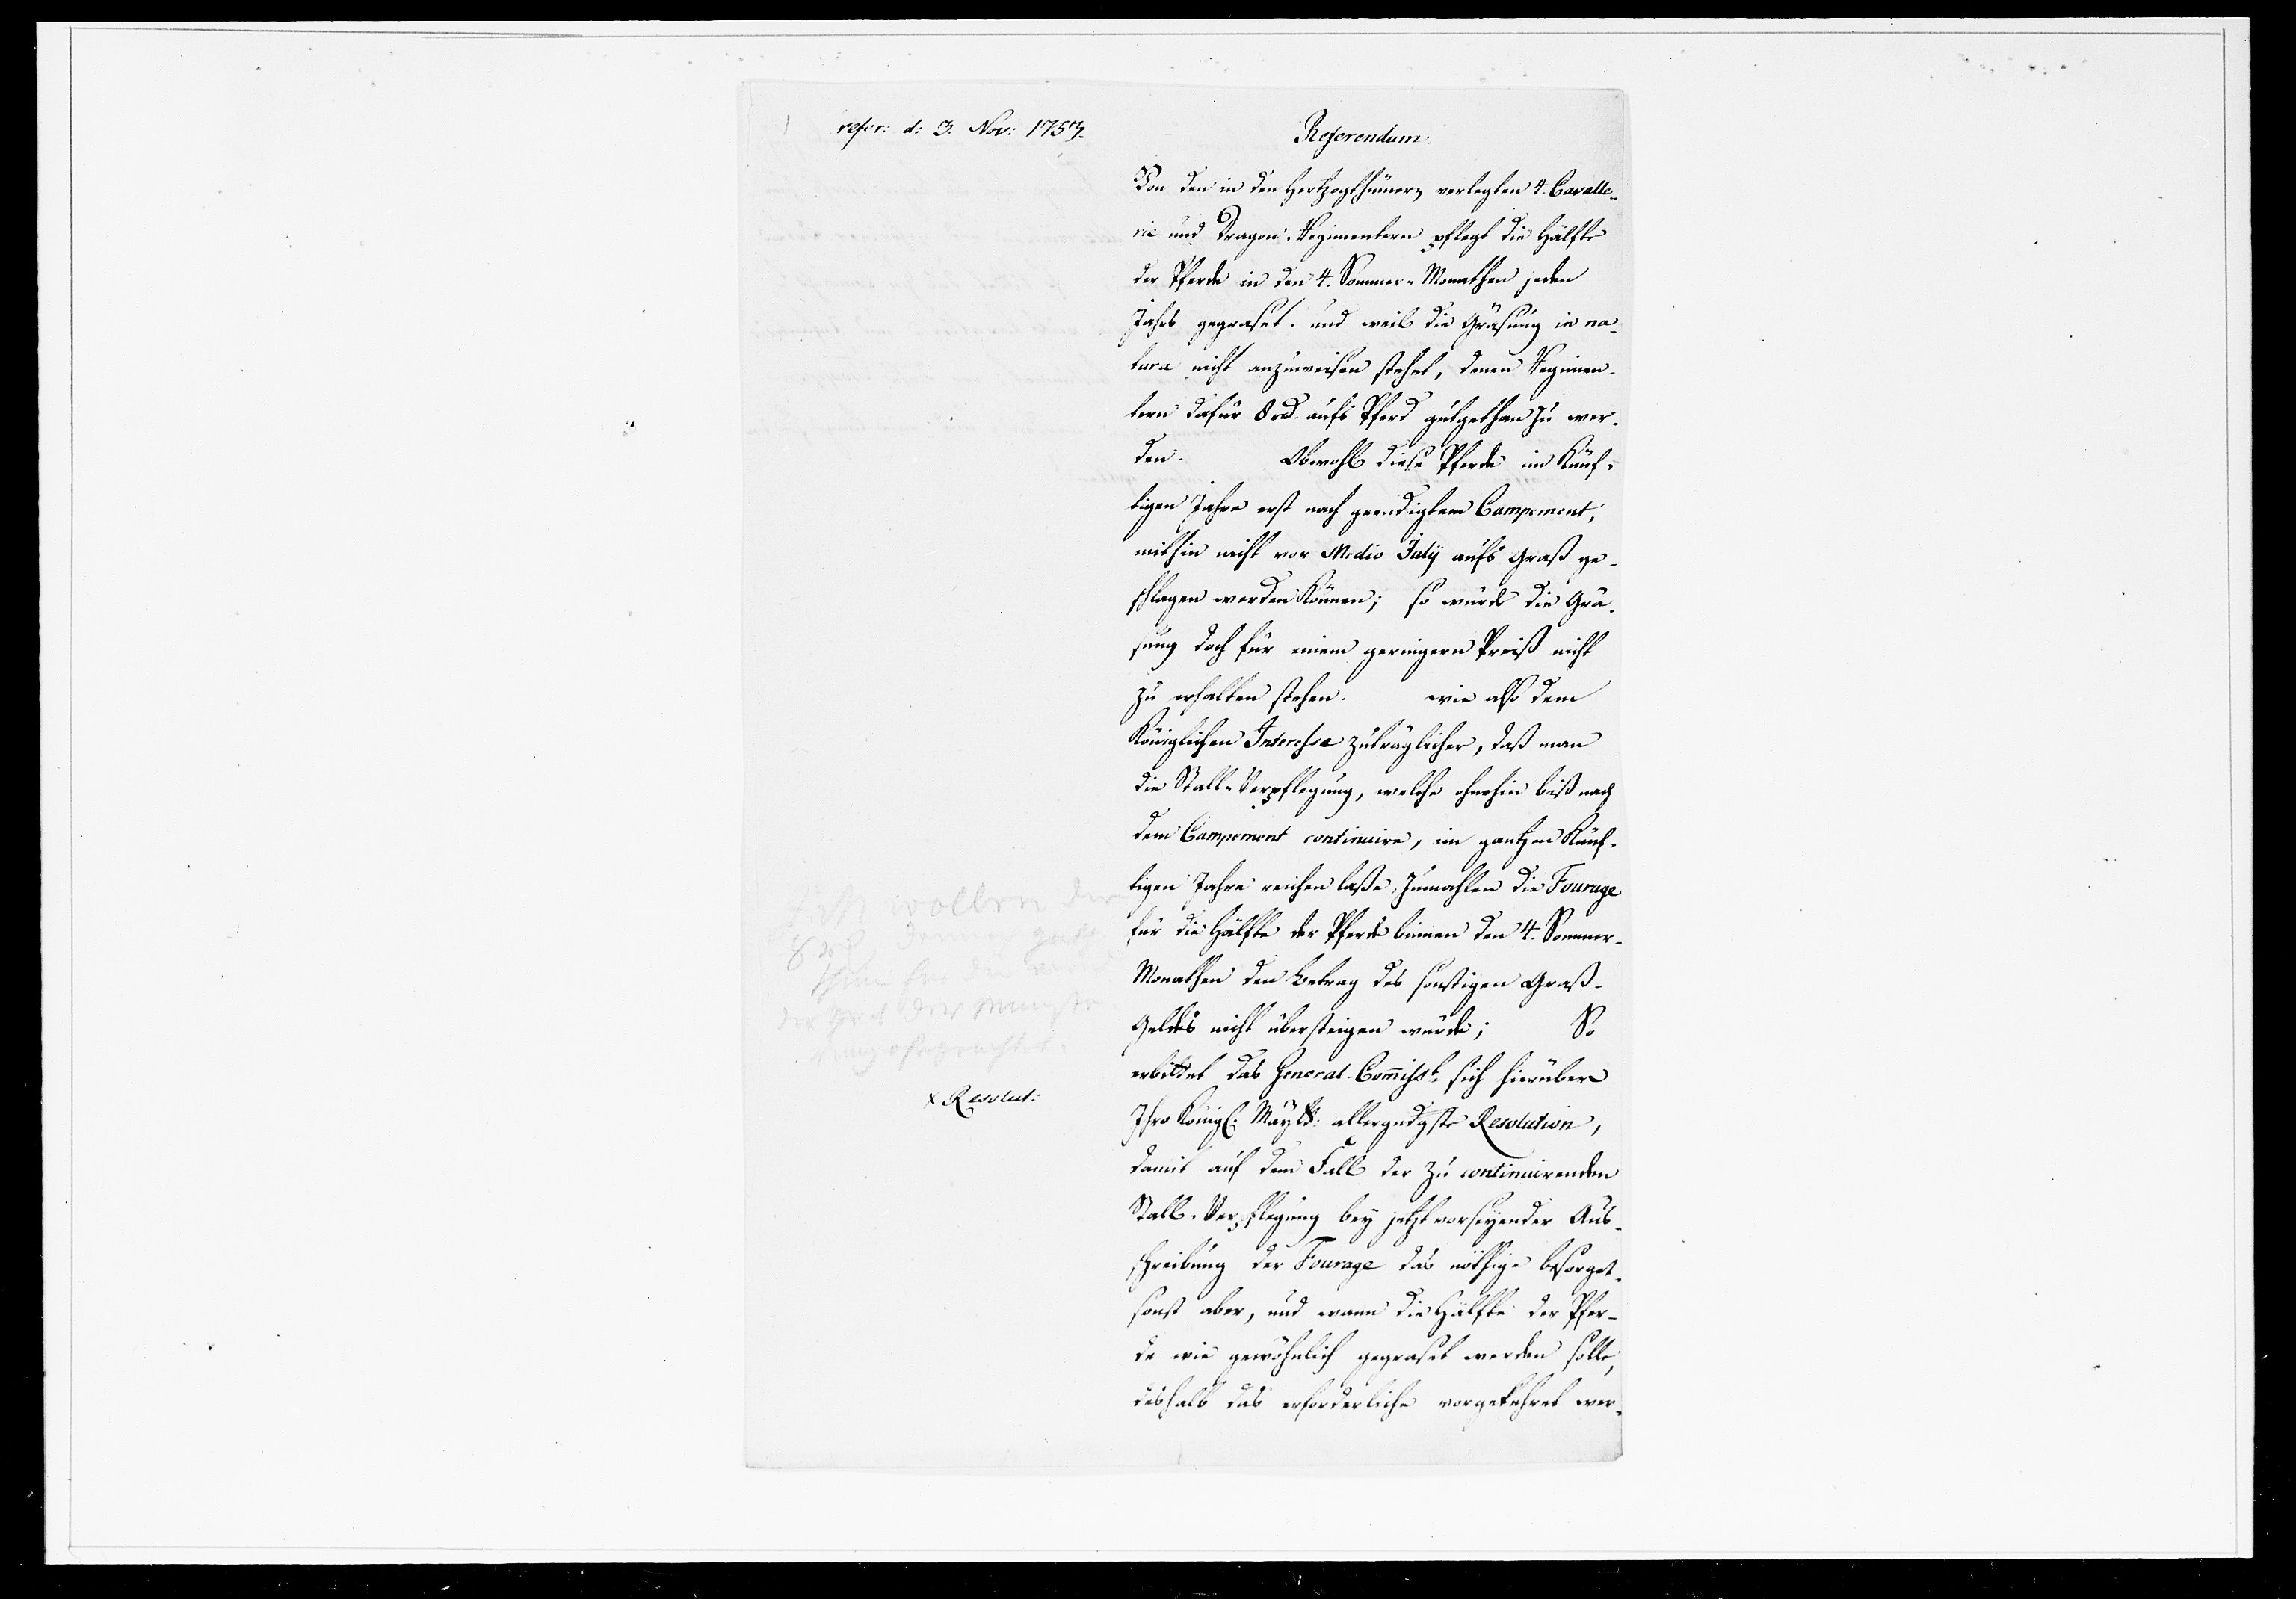 refer: d: 3. Nov: 1753.
Referendum.
Von den in den Hertzogthümern verlegten 4. Cavalle-
rie und Dragon. Regimentern pflegt die Hälfte
der Pferde in den 4. Sommer-Monathen jeden
Jahrs gegraset. und weil die Gräsung in na-
tura nicht anzuweisen stehet, denen Regimen-
tern dafür 8 rd. aufs Pferd gutgethan zu wer-
den. Obwohl diese Pferde im künf-
tigen Jahre erst nach geendigtem Campement,
mithin nicht vor Medio Julij aufs Graß ge-
schlagen werden können; so würde die Grä-
sung doch für einem geringern Preiß nicht
zu erhalten stehen. wie also dem
Königlichen Interesse zuträglicher, daß man
die Stall-Verpflegung, welche ohnehin biß nach
dem Campement continuire, im gantzen künf-
tigen Jahre reichen laße, zumahlen die Fourage
für die Hälfte der Pferde binnen den 4. Sommer-
Monathen den Betrag des sonstigen Graß-
Geldes nicht übersteigen würde; So
erbittet das General-Commisst. sich hierüber
Ihro Königl. Mayts: allergndgste Resolution,
damit auf dem Fall der zu continuirenden
Stall-Verpflegung bey jetzt vorseyender Aus-
schreibung der Fourage das nöthige besorget,
sonst aber, und wann die Hälfte der Pfer-
de wie gewöhnlich gegraset werden solle,
deshalb das erforderliche vorgekehret wer-
wollen
8 rd
x Resolut: